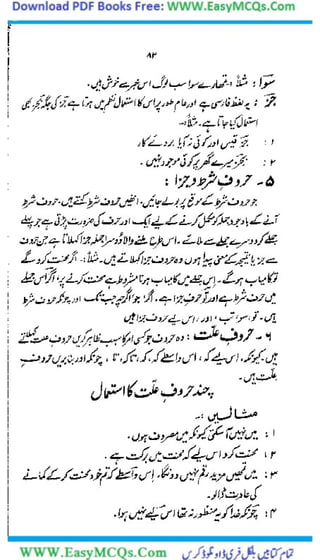 Download PDF Books Free: WWW.EasyMCQs.Com
۸۳
سوا: مثلاً: تمھارے سوا سب لوگ اس خبر سے خوش ہیں۔
جُز: یہ لفظ فارسی ہے اور عام طور پر اس کا استعمال نظم میں ہوتا ہے جز کی جگہ بجز بھی
استعمال کیا جاتا ہے۔ مثلاً:
۱: جز قیس اور کوئی نہ آیا بروئے کار
۲: بجز میرے گھر پر کوئی موجود نہیں۔
۵۔ حروفِ شرط و جزا:
جو حروف شرط کے موقع پر بولے جائیں۔ انھیں حروف شرط کہتے ہیں۔ حروف شرط
آنے کے باوجود جملہ کو مکمل کرنے کے لیے ایک اور حرف کی ضرورت پڑتی ہے جو پہلے
جملے کو دوسرے جملے سے ملائے۔ اس طرح ملنے والا دوسرا جملہ جزا کہلاتا ہے جن حروف
سے جزا یا نتیجہ کے معنی پیدا ہوں وہ حروف جزا کہلاتے ہیں۔ مثلاً: اگر محنت کرو گے
تو کامیاب ہو گے۔ اس جملے میں کامیاب ہونا مشروط ہے محنت کرنے پر، اگر اس جملے
میں حرف شرط ہے اور تو حرف جزا ہے۔ اگر، جو، اگرچہ، جب تک، اور چونکہ حروف شرط
ہیں۔ تو، سو، تب، اور، اس لیے حروف جزا ہیں۔
۶۔ حروفِ علّت: وہ حروف جو کسی امر کا سبب ظاہر کریں حروف علت کہلاتے
ہیں۔ کیونکہ، اس لیے کہ، اس واسطے کہ، کہ، تاکہ، تا، چونکہ اور بنا بریں حروف
علت ہیں۔
چند حروفِ علّت کا استعمال
مثالیں:۔
۱: میں نہیں آ سکتی کیونکہ میں مصروف ہوں۔
۲: محنت کرو اس لیے کہ محنت میں برکت ہے۔
۳: میں تمھیں مزید رقم نہیں دونگا، اس واسطے کہ تم خود محنت کر کے کمانے
کی عادت ڈالو۔
۴: چونکہ خدا کو یہ منظور نہ تھا اس لیے نہیں ہوا۔
WWW.EasyMCQs.Com تمام کتابیں بلکل فری ڈاونلوڈ کریں